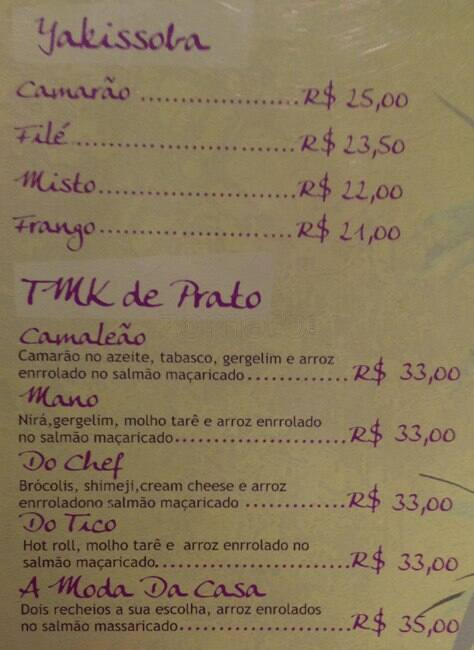 Yakissoba
Camarão ....................R$ 25,00
Filé..........................R$ 23,50
Misto.......................R$ 22,00
Frango......................R$ 21,00
TMK de Prato
Camaleão
Camarão no azeite, tabasco, gergelim e arroz
enrrolado no salmão maçaricado.............R$ 33,00
Mano
Nirá,gergelim, molho tarê e arroz enrrolado
no salmão maçaricado......................R$ 33,00
Do Chef
Brócolis, shimeji,cream cheese e arroz
enrroladono salmão maçaricado .............R$ 33,00
Do Tico
Hot roll, molho tarê e arroz enrrolado no
salmão maçaricado.........................R$ 33,00
A Moda Da Casa
Dois recheios a sua escolha, arroz enrolados
no salmão massaricado......................R$ 35,00